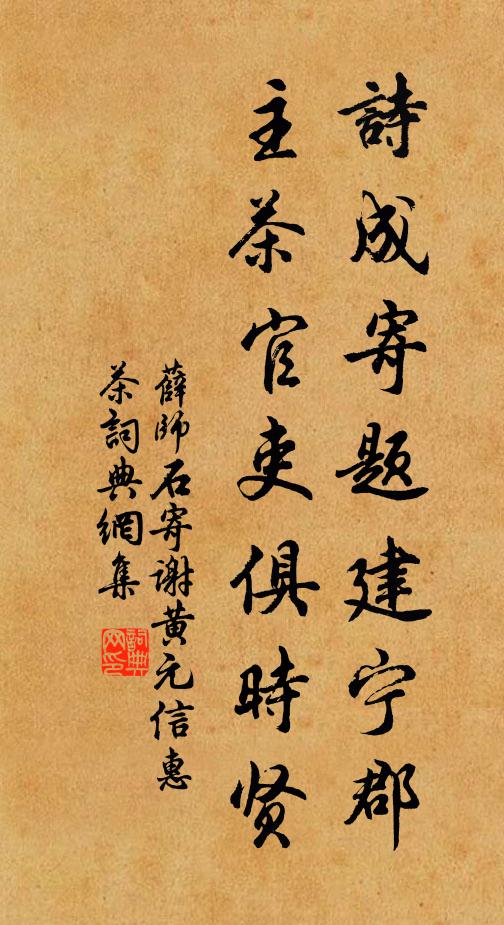 詩成寄题建宁郡
主茶官吏俱時贤
薛師石寄谢黄元信惠
茶詞典網集
詞典网印